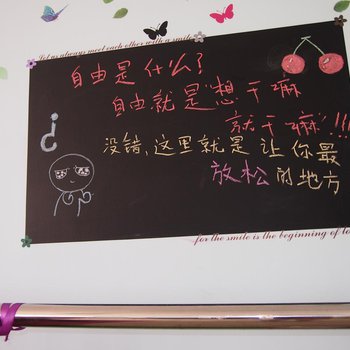 Let us always meet each other with a smile
自由是什么?
自由就是想干嘛
就干嘛!!!
没错,这里就是让你最
放松的地方
for the smile is the beginning of lo